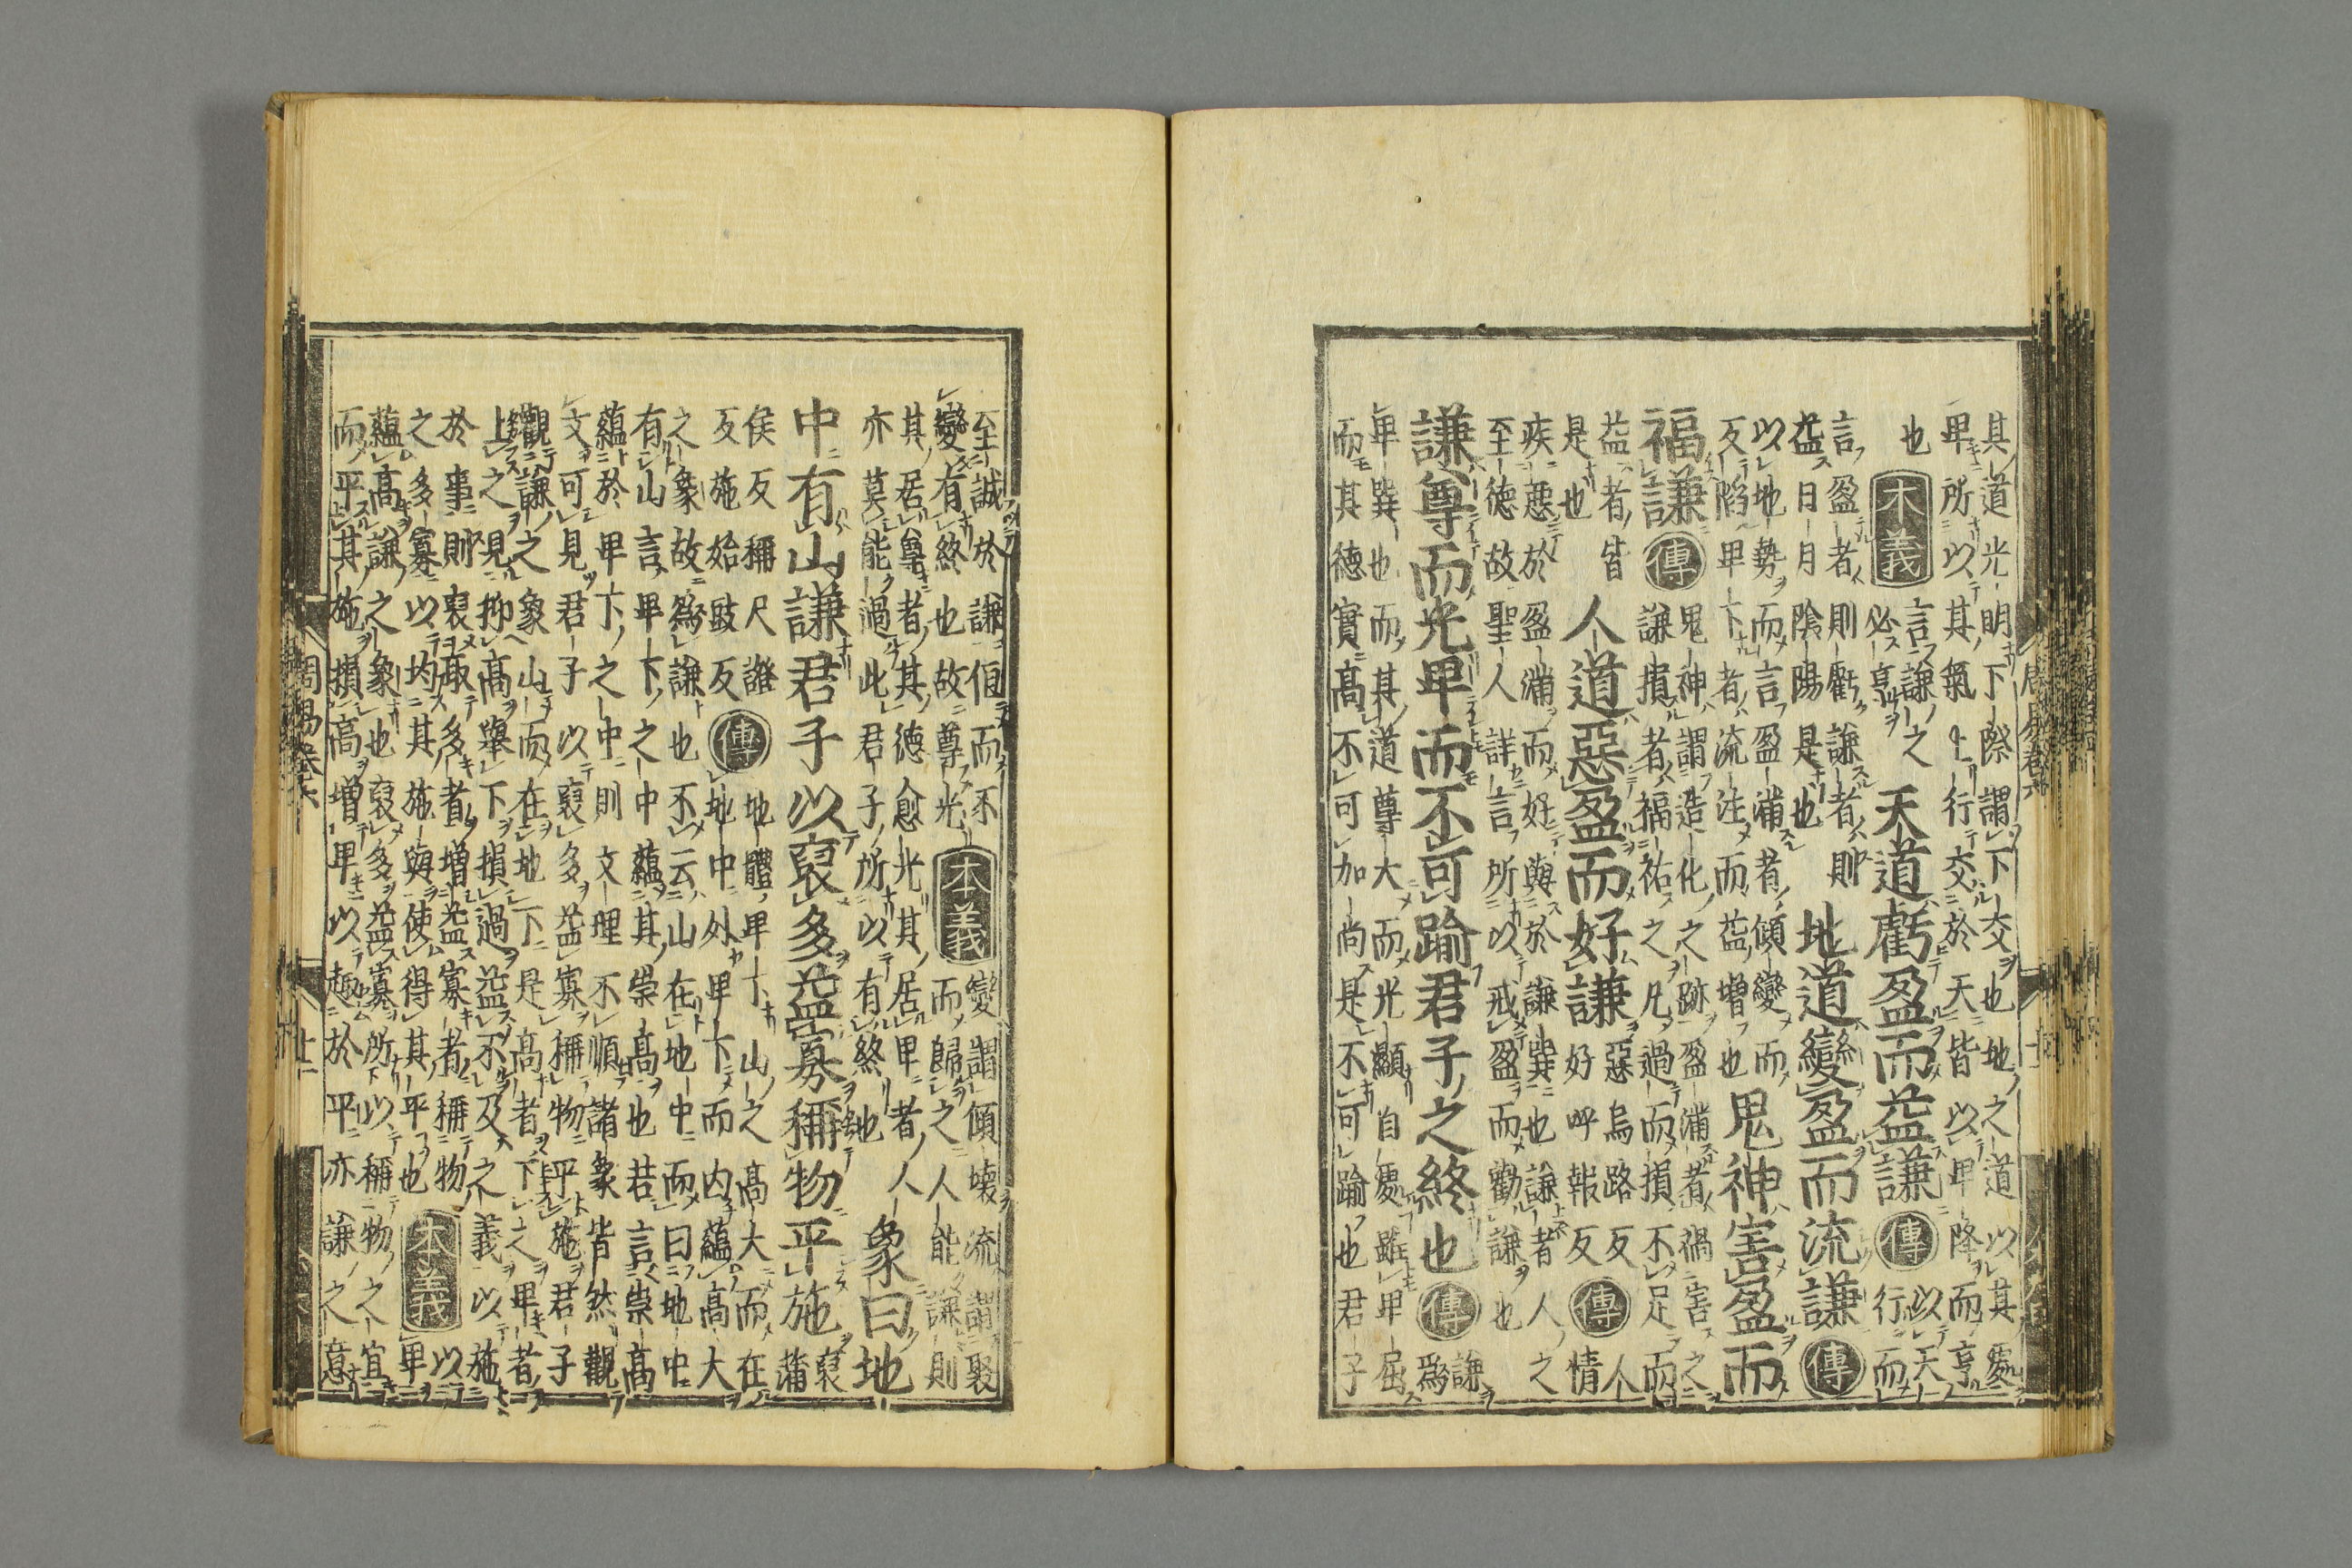 其道光明下際謂下交也地之道以其處
卑所以其氣上行交於天皆以卑降而亨
也 本義 言謙之
必亨
天道虧盈而益謙 傳 以天
行而
言盈者則虧謙者則
益日月陰陽是也
地道變盈而流謙 傳
以地勢而言盈滿者傾變而
反陷卑下者流注而益增也
鬼神害盈而
福謙 傳 鬼神謂造化之跡盈滿者禍害之
謙損者福祐之凡過而損不足而
益者皆
是也
人道惡盈而好謙 惡烏路反
好呼報反
傳 人
情
疾惡於盈滿而好與於謙巽也謙者人之
至德故聖人詳言所以戒盈而勸謙也
謙尊而光卑而不可踰君子之終也 傳 謙
爲
卑巽也而其道尊大而光顯自處雖卑屈
而其德實高不可加尚是不可踰也君子
至誠於謙恒而不
變有終也故尊光
本義 變謂傾壞流謂聚
而歸之人能謙則
其居尊者其德愈光其居卑者人
亦莫能過此君子所以有終也
象曰地
中有山謙君子以裒多益寡稱物平施 裒
蒲
侯反稱尺證
反施始豉反
傳 地體卑下山之高大而在
地中外卑下而内蘊高大
之象故爲謙也不云山在地中而曰地中
有山言卑下之中蘊其崇高也若言崇高
蘊於卑下之中則文理不順諸象皆然觀
文可見君子以裒多益寡稱物平施君子
觀謙之象山而在地下是高者下之卑者
上之見抑高舉下損過益不及之義以施
於事則裒取多者增益寡者稱物
之多寡以均其施與使得其平也
本義 以
卑
蘊高謙之象也裒多益寡所以稱物之宜
而平其施損高增卑以趣於平亦謙之意
周易卷六